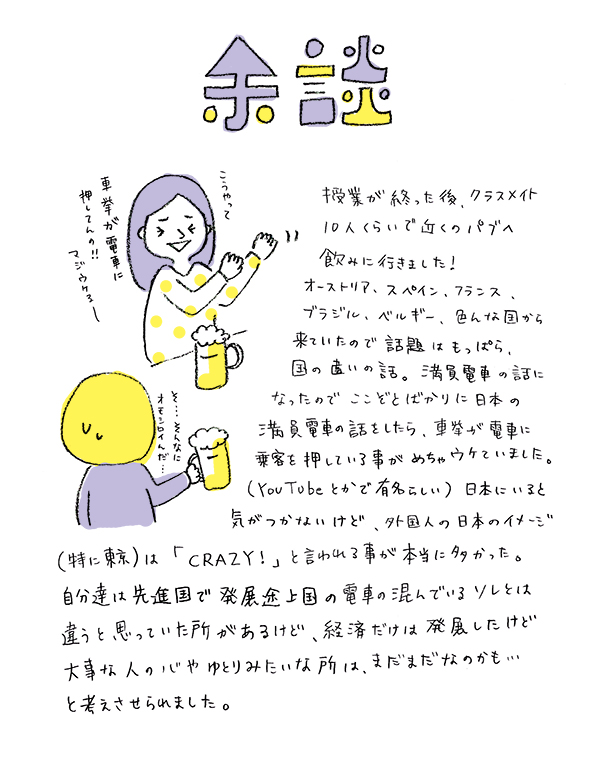 余談
こうやって
車挙が電車に
押してんの!!
マジウケるー
そ…そんなに
オモシロイんだ…
授業が終った後、クラスメイト
10人くらいで近くのパブへ
飲みに行きました!
オーストリア、スペイン、フランス、
ブラジル、ベルギー、色んな国から
来ていたので話題はもっぱら、
国の違いの話。満員電車の話に
なったのでここぞとばかりに日本の
満員電車の話をしたら、車挙が電車に
乗客を押している事がめちゃウケていました。
(YouTubeとかで有名らしい)日本にいると
気がつかないけど、外国人の日本のイメージ
(特に東京)は「CRAZY!」と言われる事が本当に多かった。
自分達は先進国で発展途上国の電車の混んでいるソレとは
違うと思っていた所があるけど、経済だけは発展したけど
大事な人の心やゆとりみたいな所は、まだまだなのかも…
と考えさせられました。